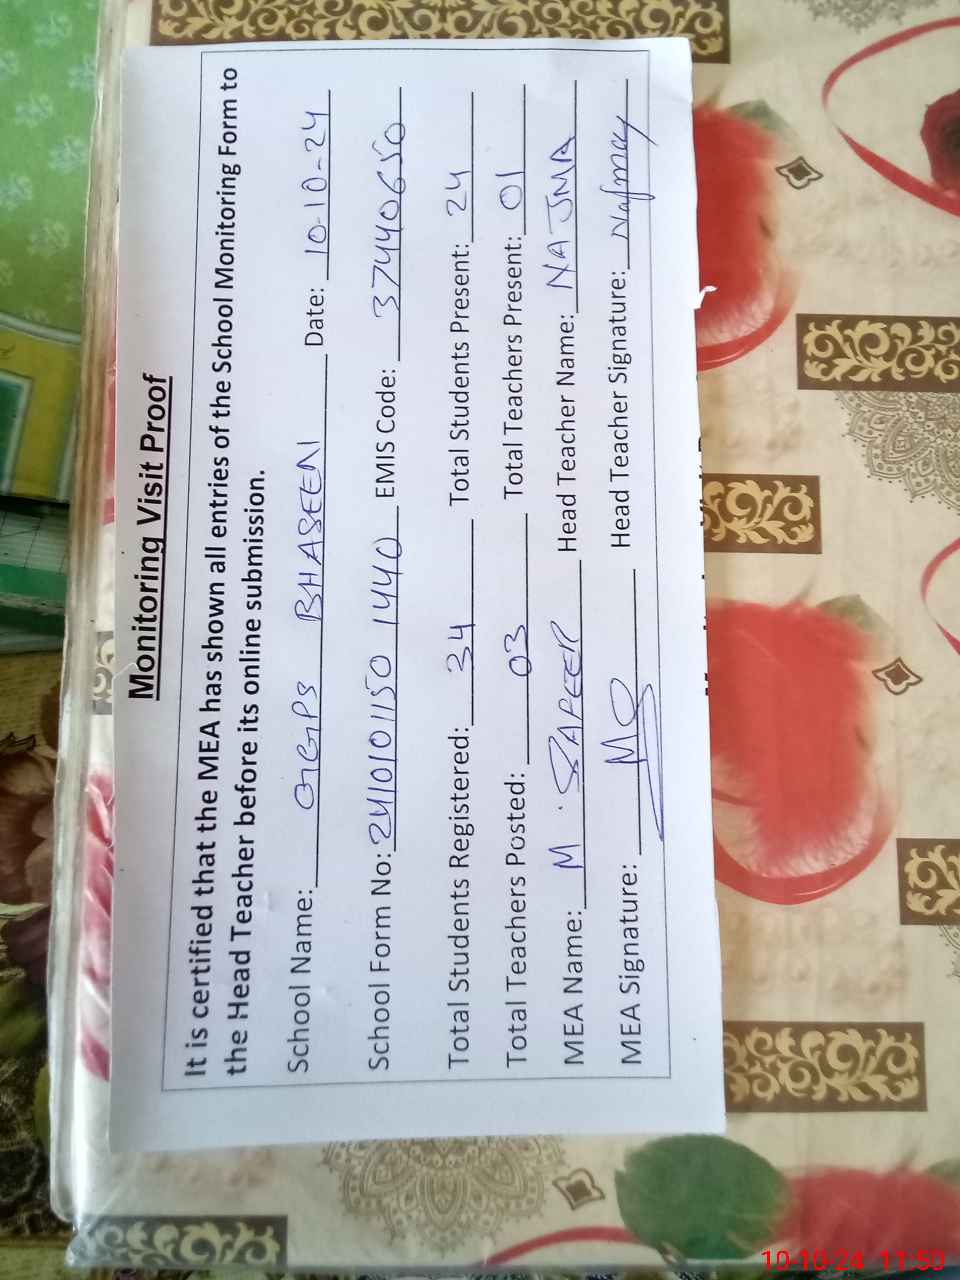 Monitoring Visit Proof
It is certified that the MEA has shown all entries of the School Monitoring Form to
the Head Teacher before its online submission.
School Name: GGPS BHASEEN Date: 10-10-24
School Form No: 2410101150 1440 EMIS Code: 37440650
Total Students Registered: 34 Total Students Present: 24
Total Teachers Posted: 03 Total Teachers Present: 01
MEA Name: M. SAFEER Head Teacher Name: NAJMA
MEA Signature: MS Head Teacher Signature:
10-10-24 11:50